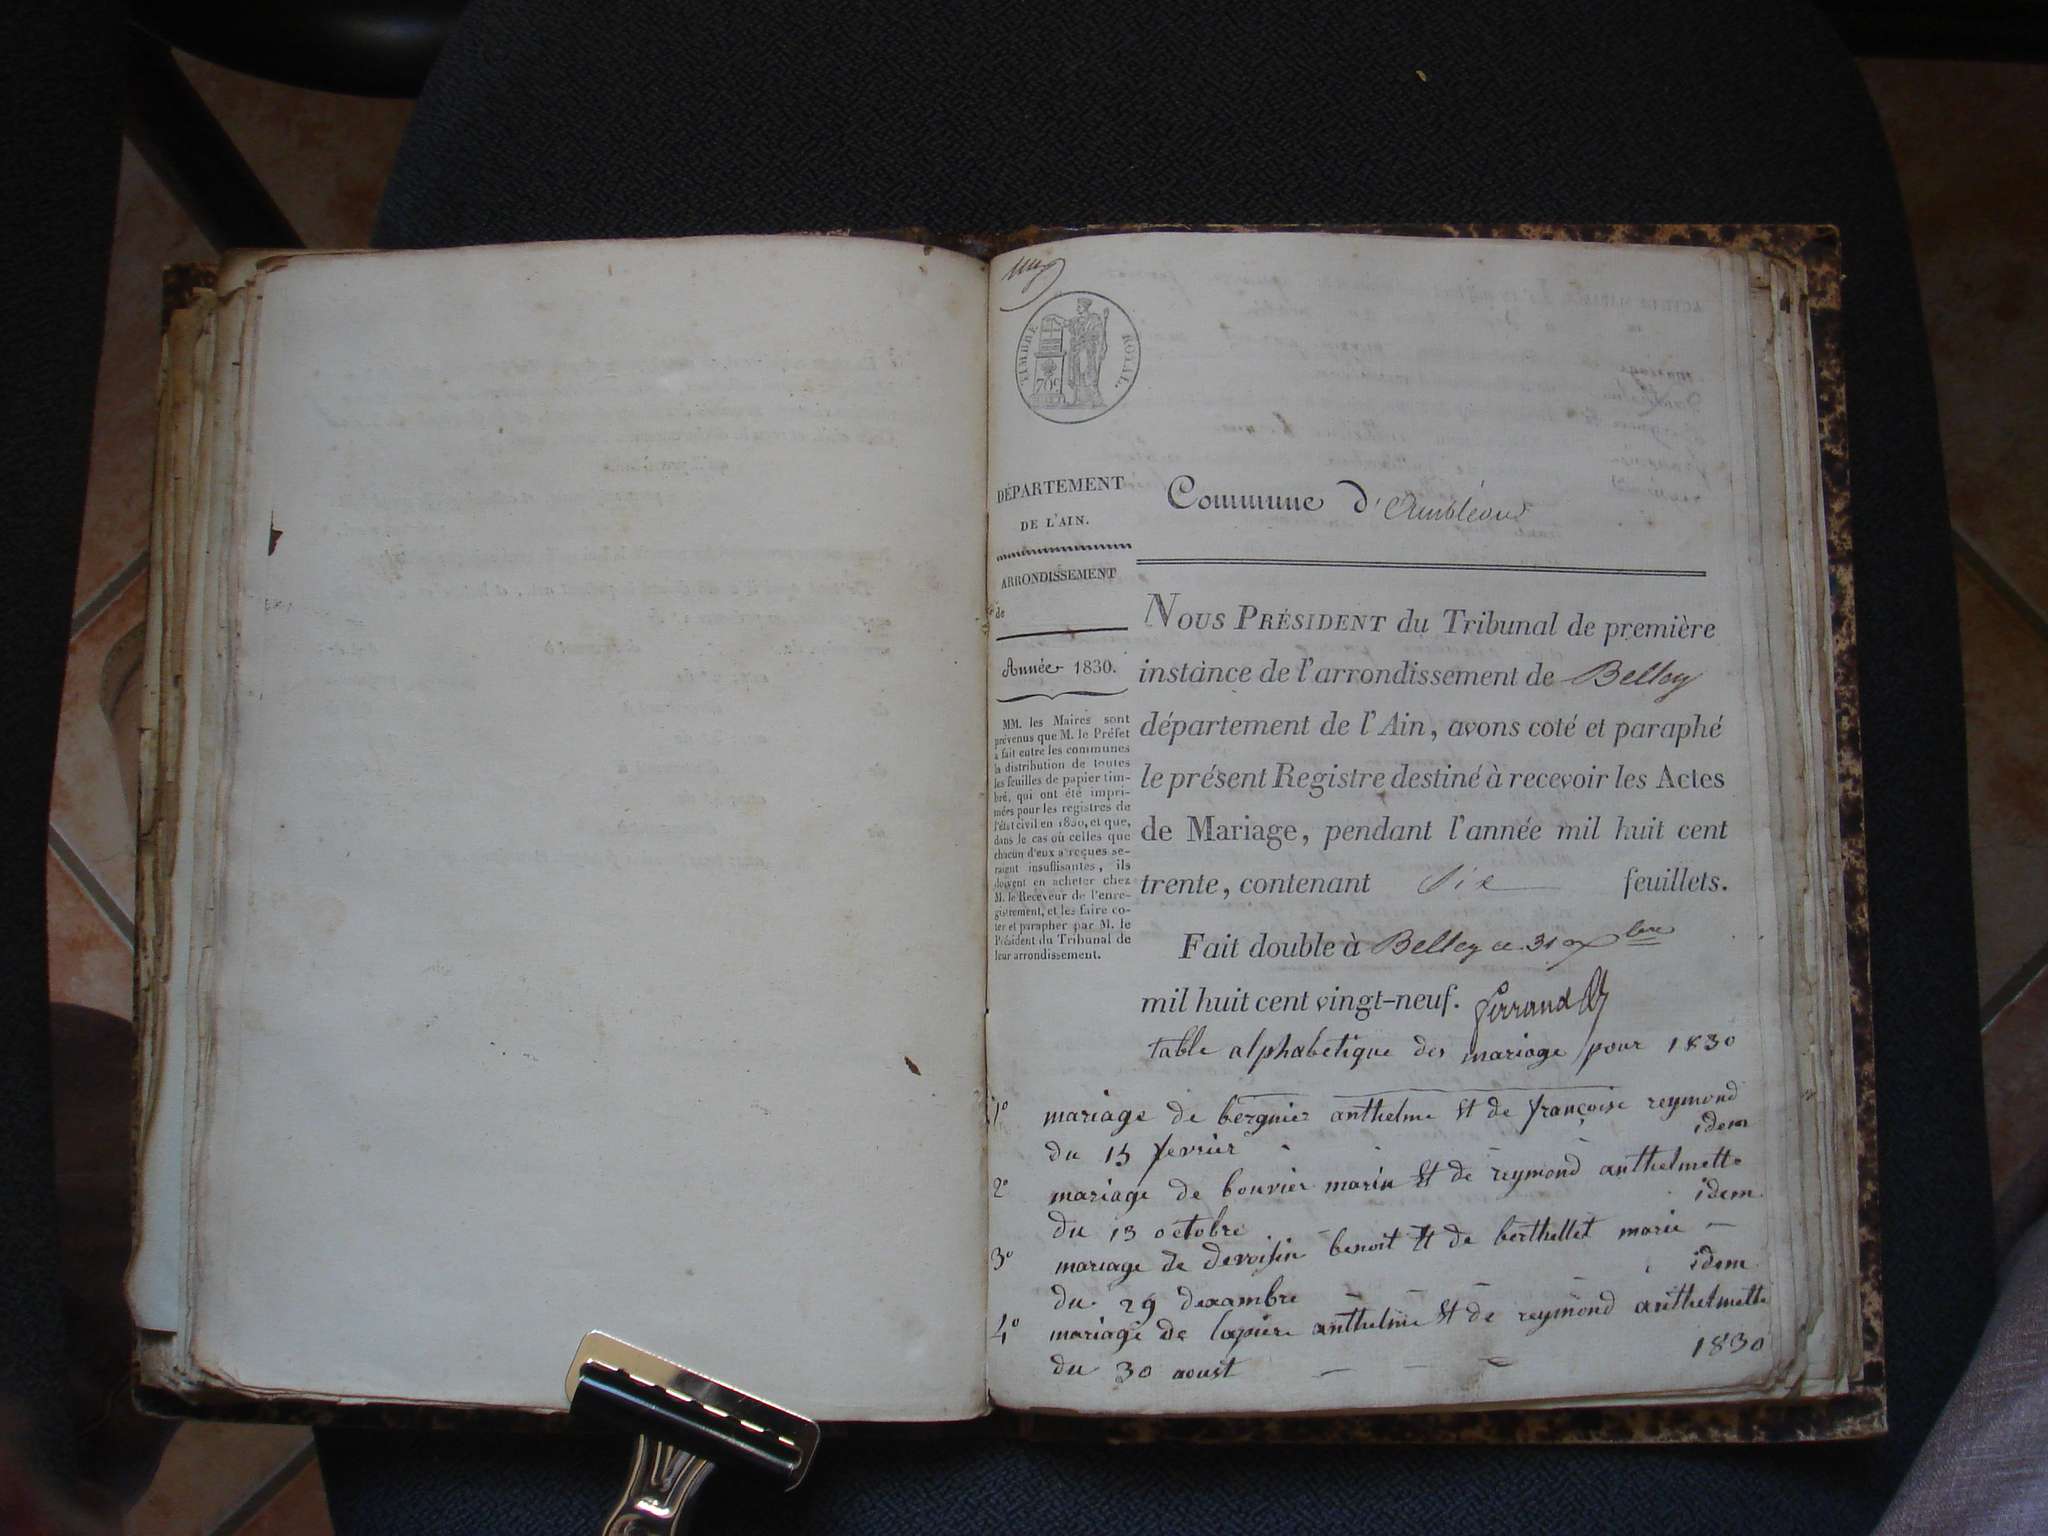 TIMBRE ROYAL.
DÉPARTEMENT
DE L'AIN.
ARRONDISSEMENT
de
Année 1830.
MM. les Maires sont
prévenus que M. le Préfet
a fait entre les communes
la distribution de toutes
les feuilles de papier tim-
bré, qui ont été impri-
mées pour les registres de
l'état civil en 1830, et que,
dans le cas où celles que
chacun d'eux a reçues se-
raient insuffisantes, ils
doivent en acheter chez
M. le Receveur de l'enre-
gistrement, et les faire co-
ter et parapher par M. le
Président du Tribunal de
leur arrondissement.
Commune d'Ambléon
NOUS PRÉSIDENT du Tribunal de première
instance de l'arrondissement de Belley
département de l'Ain, avons coté et paraphé
le présent Registre destiné à recevoir les Actes
de Mariage, pendant l'année mil huit cent
trente, contenant six feuillets.
Fait double à Belley ce 31 Xbre
mil huit cent vingt-neuf. ferrand
table alphabetique des mariage pour 1830
1° mariage de bergnier anthelme et de françoise reymond
du 15 fevrier idem
2° mariage de bouvier marin et de reymond anthelmette
du 13 octobre idem
3° mariage de devoisin benoit et de berthellet marie
du 29 dexambre idem
4° mariage de lapiere anthelme et de reymond anthelmette
du 30 aoust 1830